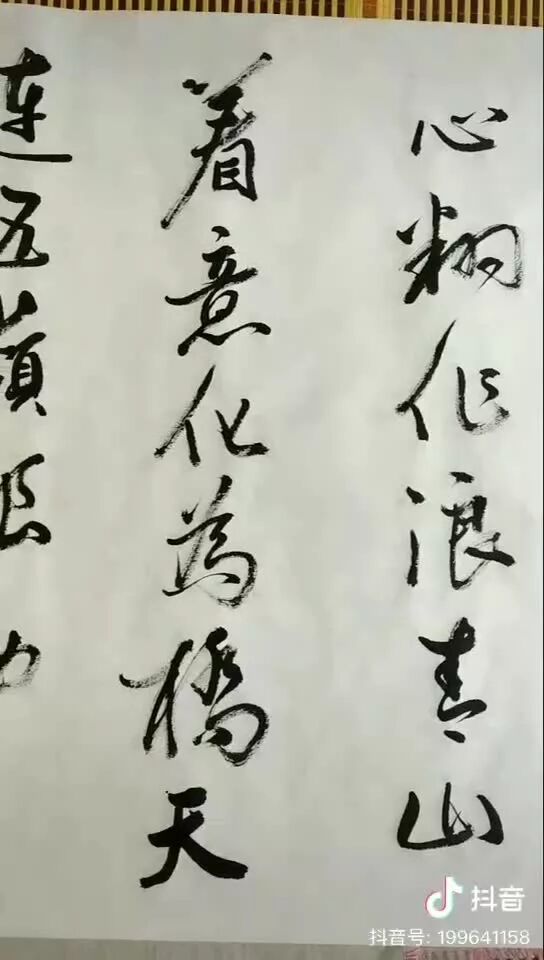 心翻作浪青山
着意化為橋天
連五嶺
抖音
抖音号: 199641158